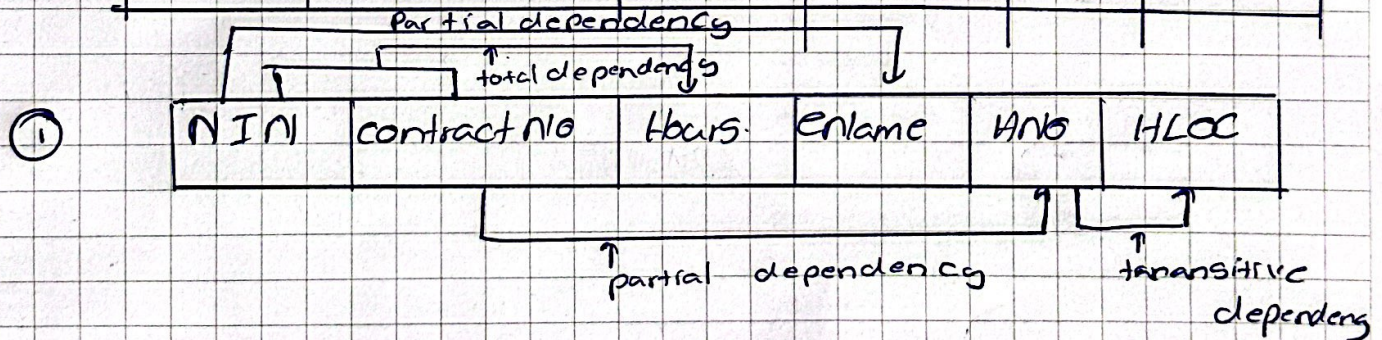 Partial dependency
total dependency
① NIN contractNo Hours. eName HNO HLOC
partial dependency
tanansitive
dependeng